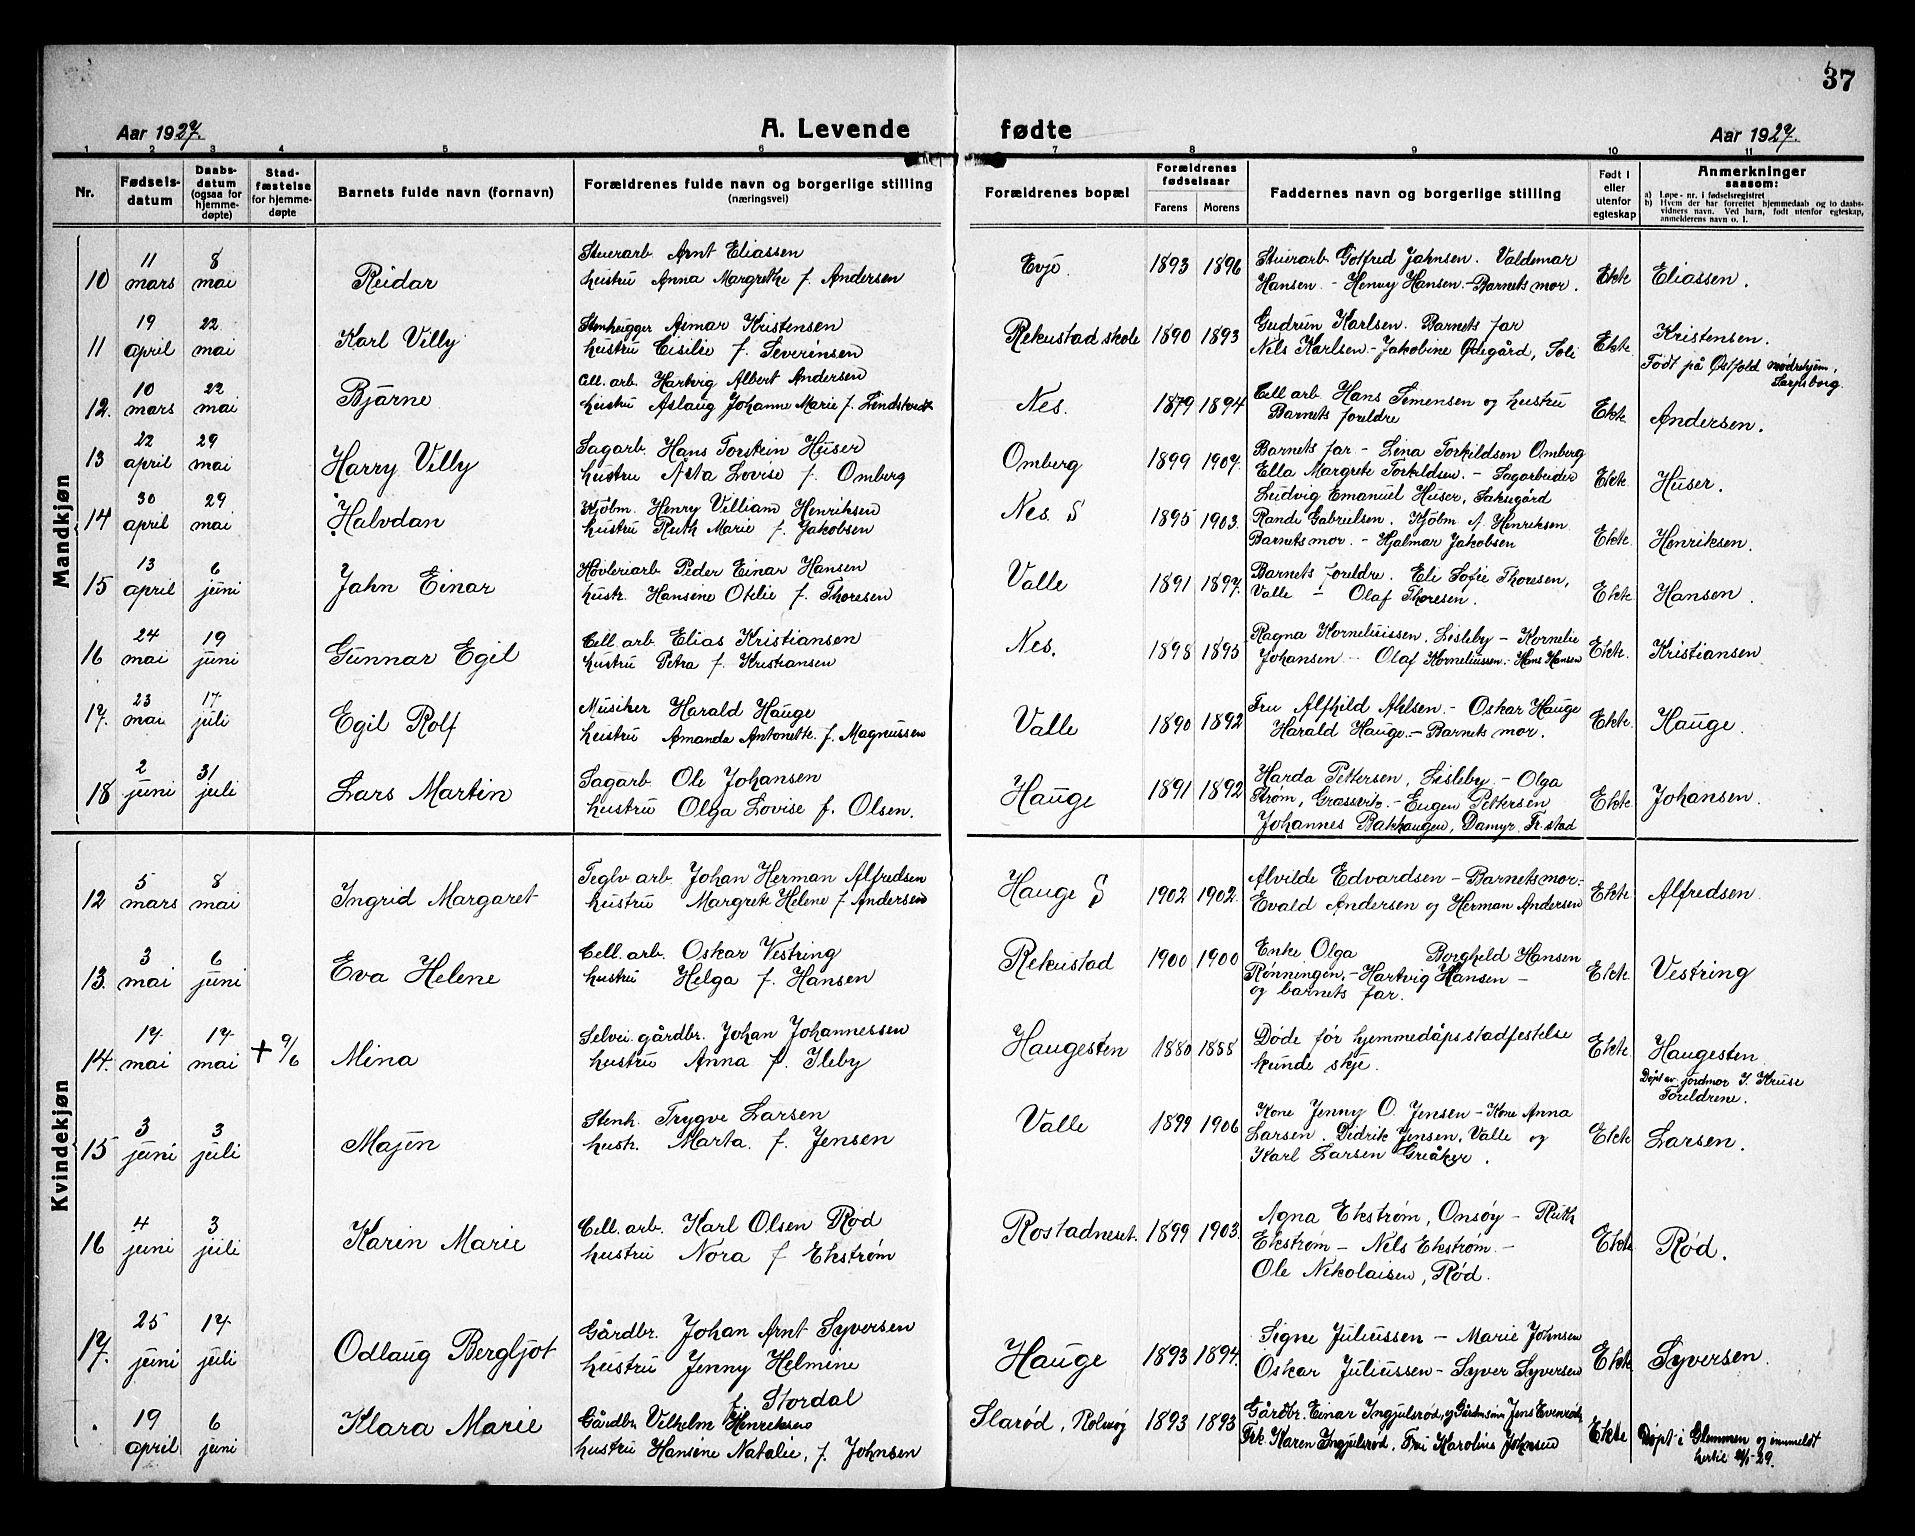 37
Aar 1927.
A. Levende
fødte
Aar 1927.
1 2 3 4 5 6 7 8 9 10 11
Nr.
Fødselsdatum
Daabsdatum (ogsaa for hjemmedøpte)
Stadfæstelse for hjemmedøpte
Barnets fulde navn (fornavn)
Forældrenes fulde navn og borgerlige stilling (næringsvei)
Forældrenes bopæl
Forældrenes fødselsaar
Farens Morens
Faddernes navn og borgerlige stilling
Født i eller utenfor egteskap
Anmerkninger saasom:
a) Løpe-nr. i fødselsregistret
b) Hvem der har forrettet hjemmedaab og to daabsvidners navn. Ved barn, født utenfor egteskap, anmelderens navn o. l.
Mandkjøn
11 8 Stuerarb Arnt Eliassen Evje. 1893 1896 Stuerarb Gotfred Jahnsen. Valdemar
10 mars mai Reidar hustru Anna Margrethe f. Andersen Hansen - Henry Hansen - Barnets mor. Ekte Eliassen.
19 22 Stenhugger Asmar Kristensen Rekustad skole 1890 1893 Gudrun Karlsen. Barnets far Kristensen.
11 april mai Karl Villy hustru Cisilie f. Severinsen Nils Karlsen - Jakobine Ødegård, Soli Ekte Født på Østfold mødrehjem, Sarpsborg.
10 22 Cell. arb. Hartvig Albert Andersen Nes. 1879 1894 Cell arb. Hans Simensen og hustru
12. mars mai Bjarne hustru Aslaug Johanne Marie f. Lindstedt Barnets foreldre Ekte Andersen.
22 29 Sagarb. Hans Torstein Huser Omberg 1899 1907. Barnets far - Lina Torkildsen Omberg
13 april mai Harry Villy hustru Asta Lovise f. Omberg Ella Margrete Torkildsen. - Sagarbeider Ekte Huser.
Ludvig Emanuel Huser, Saksegård
30 29 Kjøbm. Henry Villiam Henriksen Nes. S 1895 1903. Randi Gabrielsen. Kjøbm A. Henriksen
14 april mai Halvdan hustru Ruth Marie f. Jakobsen Barnets mor. - Hjalmar Jakobsen Ekte Henriksen.
13 6 Høvleriarb Peder Einar Hansen Valle 1891 1897. Barnets foreldre. Eli Sofie Thoresen,
15 april juni Jahn Einar hustr. Hansine Otelie f. Thoresen Valle - Olaf Thoresen. Ekte Hansen.
24 19 Cell. arb. Elias Kristiansen Nes. 1898 1895 Ragna Korneliussen, Lisleby - Kornelie
16 mai juni Gunnar Egil hustru Petra f. Kristiansen Johansen - Olaf Korneliussen - Hans Hansen Ekte. Kristiansen
23 17 Musiker Harald Hauge Valle 1890 1892 Fru Alfhild Ahlsen. - Oskar Hauge
17. mai juli Egil Rolf hustru Amanda Antonette. f. Magnussen Harald Hauge. - Barnets mor. Ekte. Hauge.
2 31 Sagarb. Ole Johansen Hauge 1891 1892 Harda Pettersen, Lisleby. - Olga
18 juni juli Lars Martin hustru Olga Lovise f. Olsen. Strøm, Græsvik. - Eugen Pettersen Ekte Johansen.
Johannes Bakhaugen, Damyr. Fr.stad
Kvindekjøn
5 8 Teglv. arb. Johan Herman Alfredsen Hauge S 1902 1902. Alvilde Edvardsen - Barnets mor.-
12 mars mai Ingrid Margaret hustru Margrete Helene f Andersen Evald Andersen og Herman Andersen Ekte Alfredsen.
3 6 Cell. arb. Oskar Vestring Rekustad 1900 1900 Enke Olga Borghild Hansen
13. mai juni Eva Helene hustru Helga f. Hansen Rønningen, - Hartvig Hansen - Ekte Vestring
og barnets far.
17 17 Selvei. gårdbr. Johan Johannessen Haugesten 1880 1888 Døde før hjemmedåpsstadfestelse
14. mai mai + 9/6 Mina hustru Anna f. Ileby kunde skje. Ekte Haugesten
Døpt av jordmor I. Kruse
Foreldrene.
3 3 Stenh. Trygve Larsen Valle 1899 1906 Kone Jenny O. Jensen - Kone Anna
15 juni juli Majen hustr. Marta. f. Jensen Larsen. Didrik Jensen, Valle og Ekte Larsen.
Karl Larsen Greåker.
4 3 Cell. arb. Karl Olsen Rød Rostadneset. 1899 1903. Agna Ekstrøm, Onsøy - Ruth
16 juni juli Karin Marie hustru Nora f Ekstrøm Ekstrøm - Nils Ekstrøm. - Ekte Rød.
Ole Nikolaisen, Rød.
25 17 Gårdbr. Johan Arnt Syversen Hauge 1893 1894. Signe Juliussen - Marie Johnsen
17. juni juli Odlaug Bergljot hustru Jenny Helmine Oskar Juliussen - Syver Syversen Ekte Syversen.
f. Stordal
19 6 Klara Marie Gårdbr. Vilhelm Henriksen Slarød, Rolvsøy 1893 1893 Gårdbr. Einar Ingjulsrød, og Gårdmann Jens Evenrød,
april juni hustru Hansine Natalie, f. Johnsen Frk. Karen Ingjulsrød, Fru Karoline Johnsen Ekte Døpt i Glemmen og innmeldt
hertil -29.